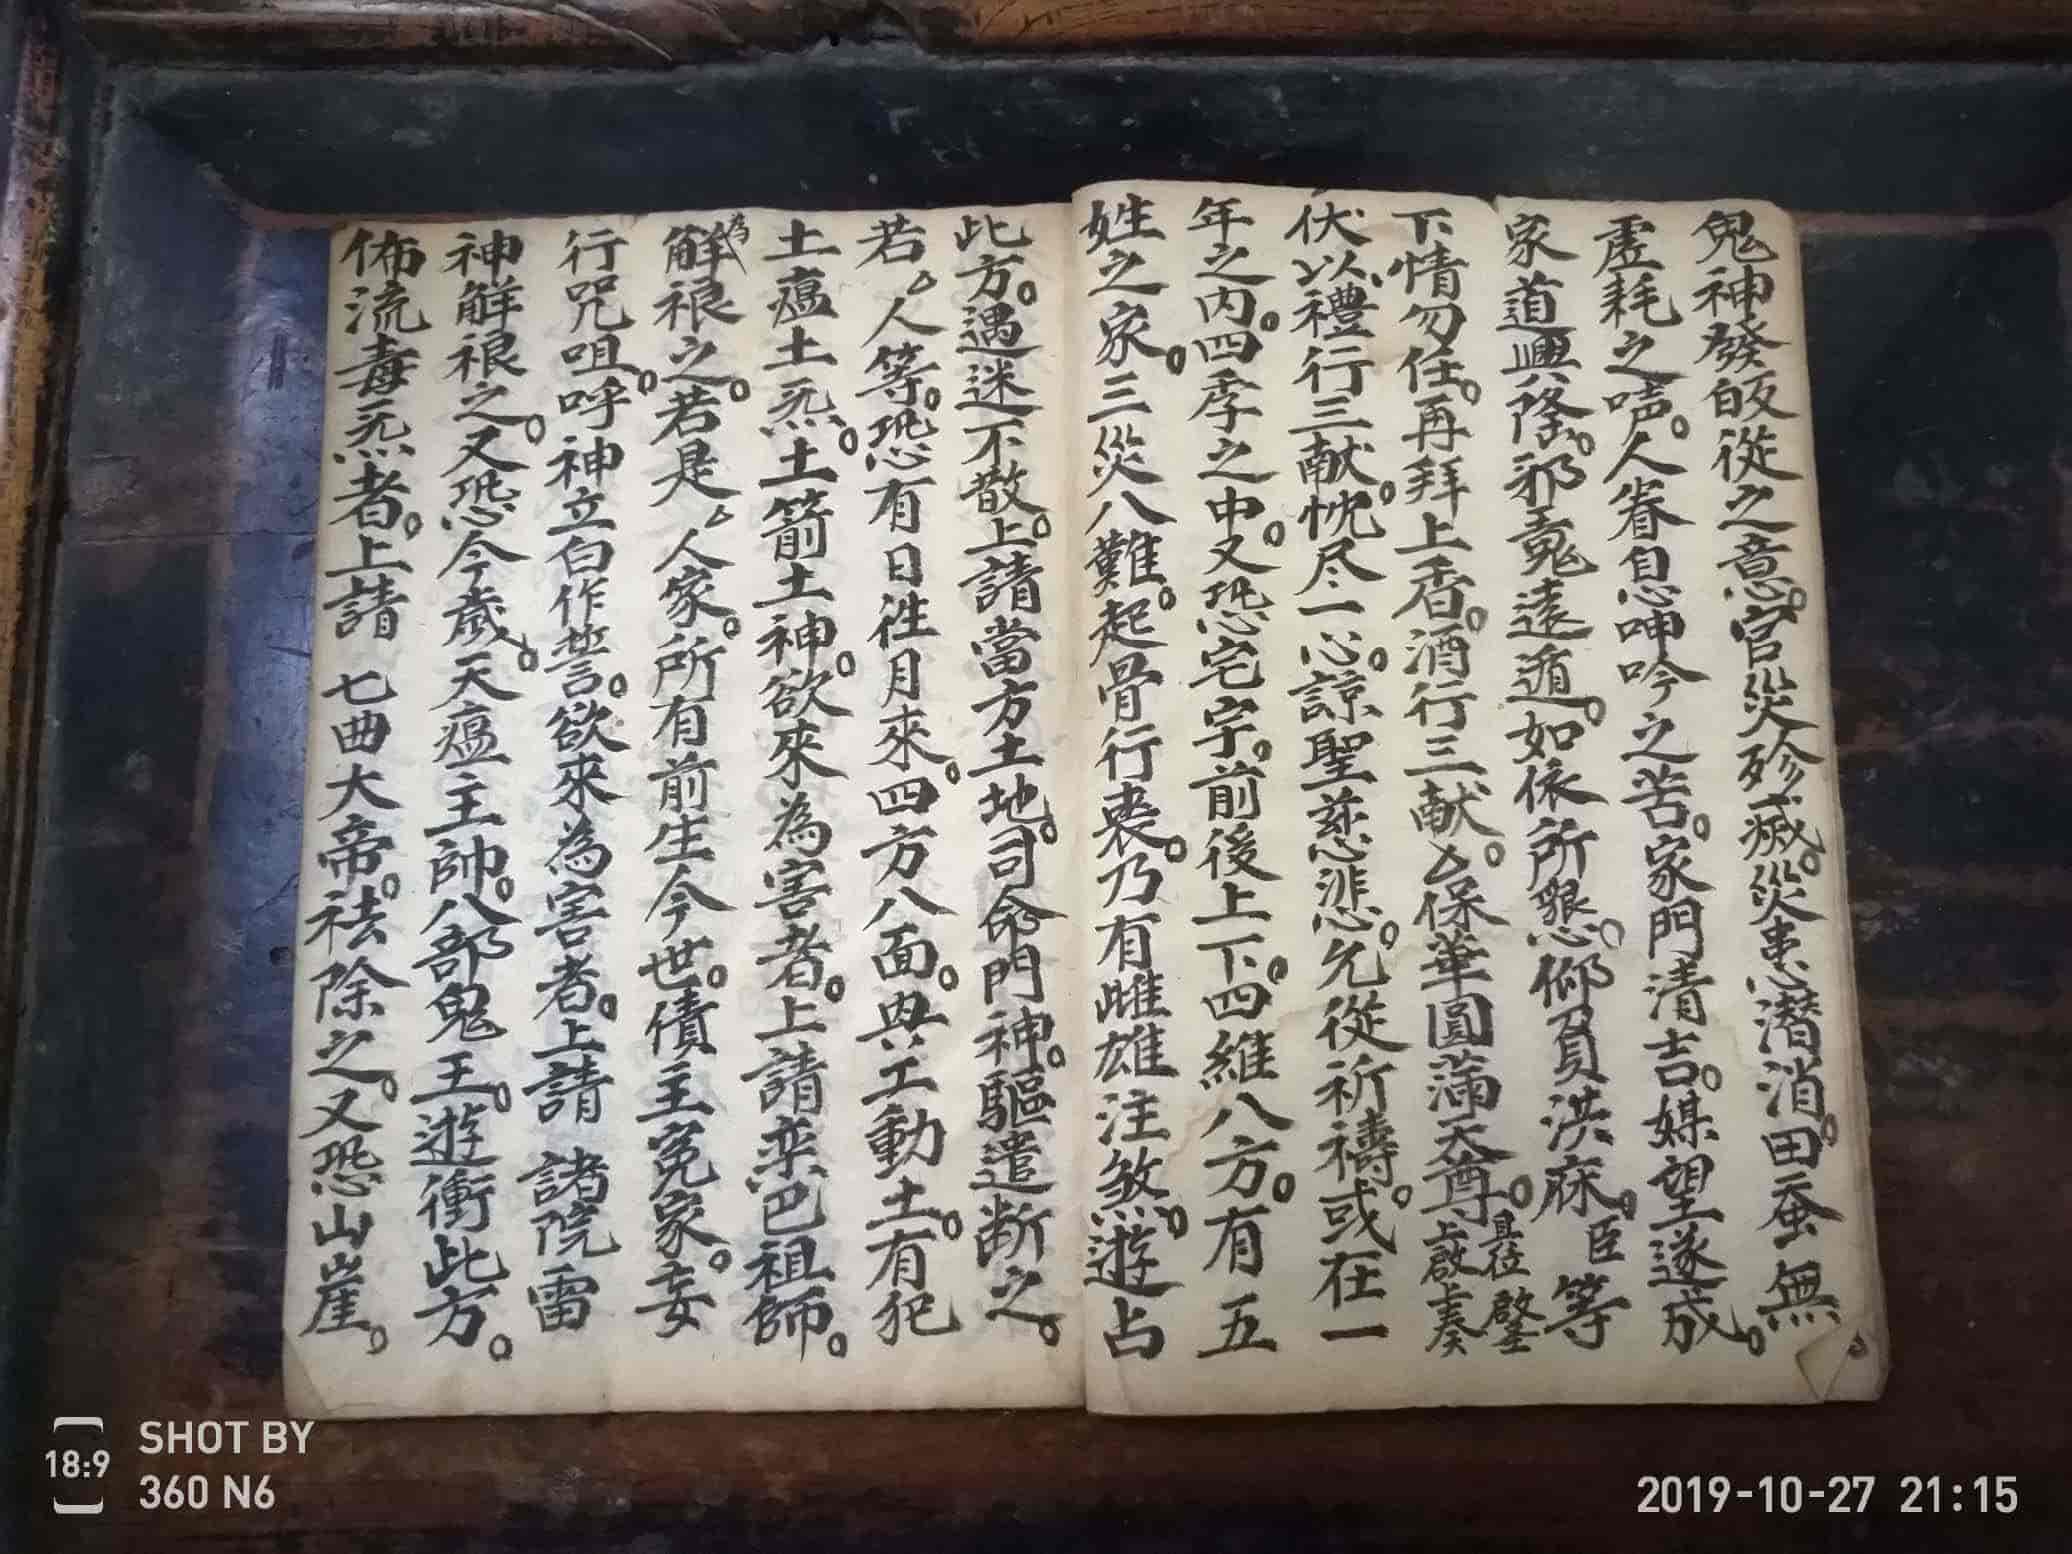 鬼神發皈從之意。官災殄滅。災患潛消。田蚕無
虗耗之声。人眷息呻吟之苦。家門清吉。媒望遂成。
家道興隆。邪鬼遠遁。如依所懇。仰負洪庥。臣等
下情勿任。再拜上香。酒行三献。保華圓滿天尊。具位啓上啟上奏
伏以禮行三献。忱尽一心。諒聖慈悲。允從祈禱。或在一
年之内。四季之中。又恐宅宇。前後上下。四維八方。有五
姓之家。三災八難。起骨行喪。乃有雌雄注煞。遊占
此方。遇迷不散。上請當方土地。司命門神。驅遣断之。
若人等。恐有日徃月來。四方八面。興工動土。有犯
土瘟土炁。土箭土神。欲來為害者。上請栾巴祖師。
為解禳之。若是人家。所有前生今世。債主冤家。妄
行咒咀。呼神立白作誓。欲來為害者。上請 諸院雷
神解禳之。又恐今歲。天瘟主帥。八部鬼王。遊衝此方。
佈流毒炁者。上請 七曲大帝。祛除之。又恐山崖。
SHOT BY
18:9
360 N6
2019-10-27 21:15